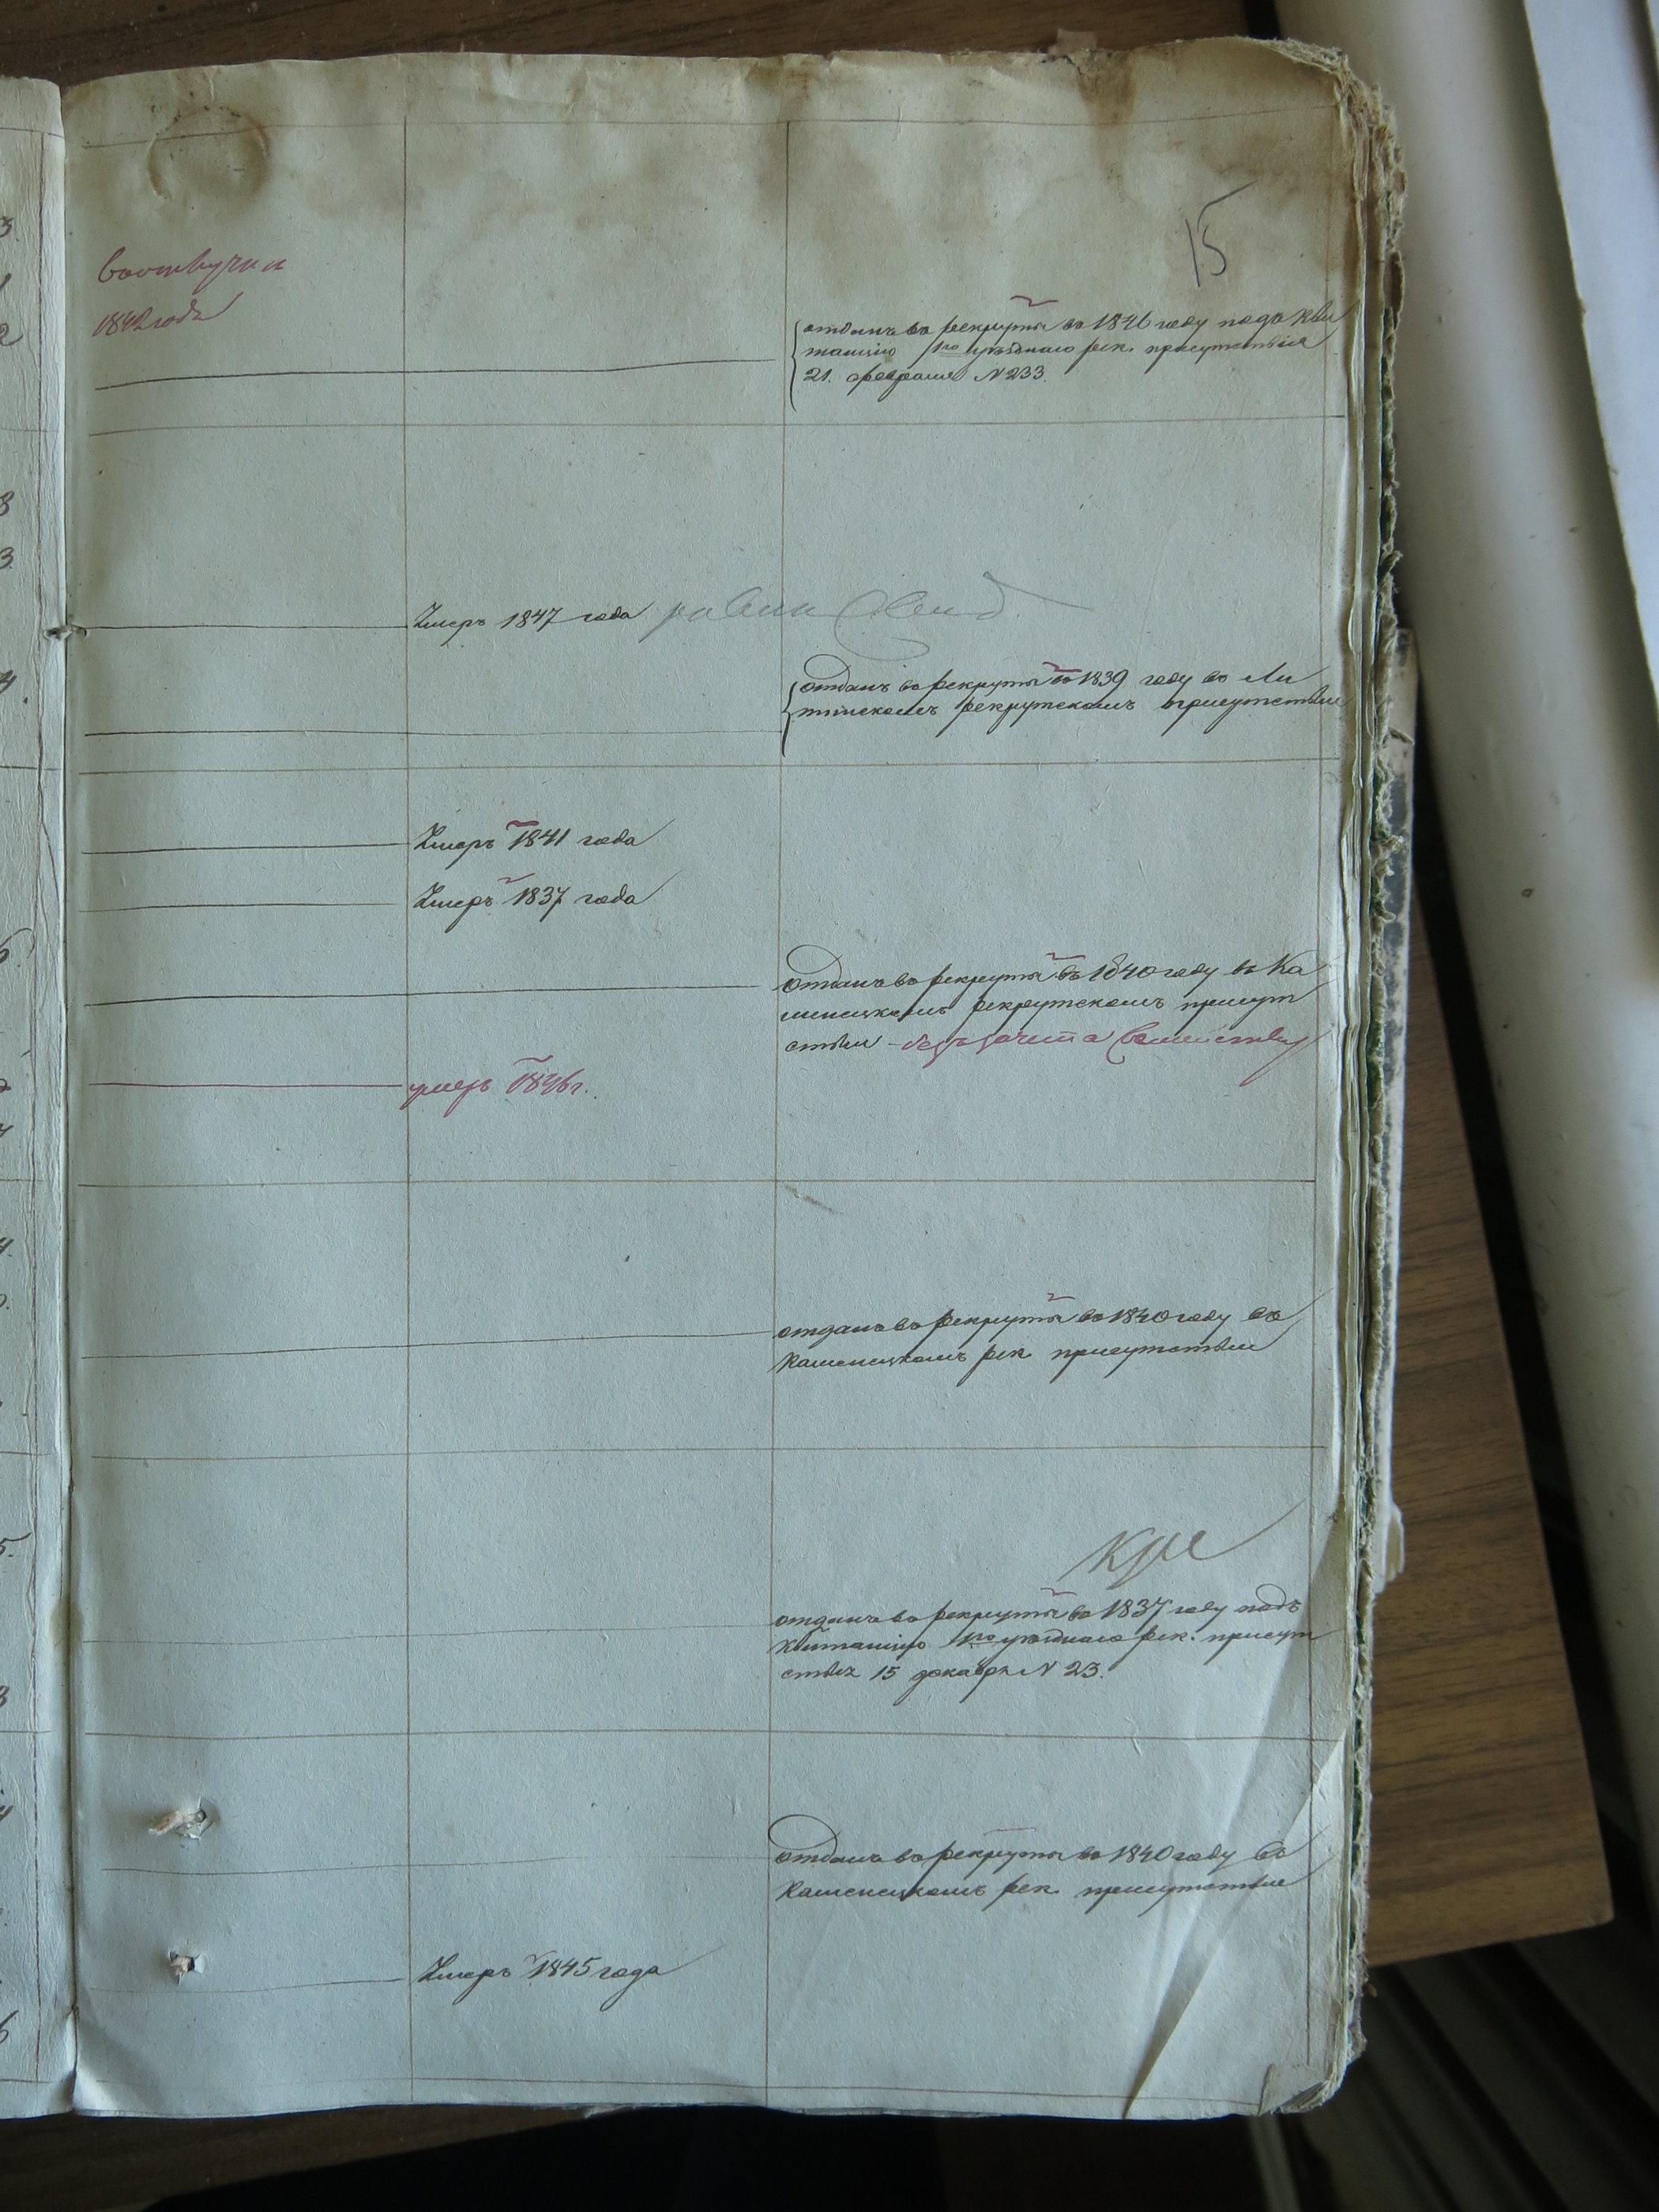 15
1842 года
отданъ въ рекруты въ 1846 году подъ кви
танцію 1го уѣзднаго рек. присутствія
21. февраля N 233.
Умеръ 1847 года
отданъ въ рекруты въ 1839 году въ Ли
тинскомъ рекрутскомъ присутствіи
Умеръ 1841 года
Умеръ 1837 года
отданъ въ рекруты въ 1840 году въ Ка
менецкомъ рекрутскомъ присут
ствіи - безъ зачета Семейству
умеръ 1846 г.
отданъ въ рекруты въ 1840 году въ
Каменецкомъ рек. присутствіи
отданъ въ рекруты въ 1837 году подъ
Квитанцію 1го уѣзднаго рек. присут
ствія 15 декабря N 23.
Отданъ въ рекруты въ 1840 году въ
Каменецкомъ рек. присутствіи
Умеръ 1845 года